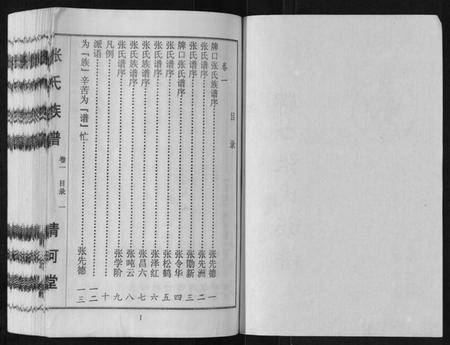 目录
卷一
牌口张氏族谱序……张先德 一
张氏谱序……张先洲 二
张氏谱序……张勋新 三
牌口张氏谱序……张令华 四
张氏谱序……张松鹤 五
张氏谱序……张泽红 六
张氏族谱序……张昌六 七
张氏族谱序……张吨云 八
张氏谱序……张学阶 九
凡例…… 十
派语…… 一二
为「族」辛苦为「谱」忙……张先德 一三
张氏族谱 卷一 目录 一 清河堂
1